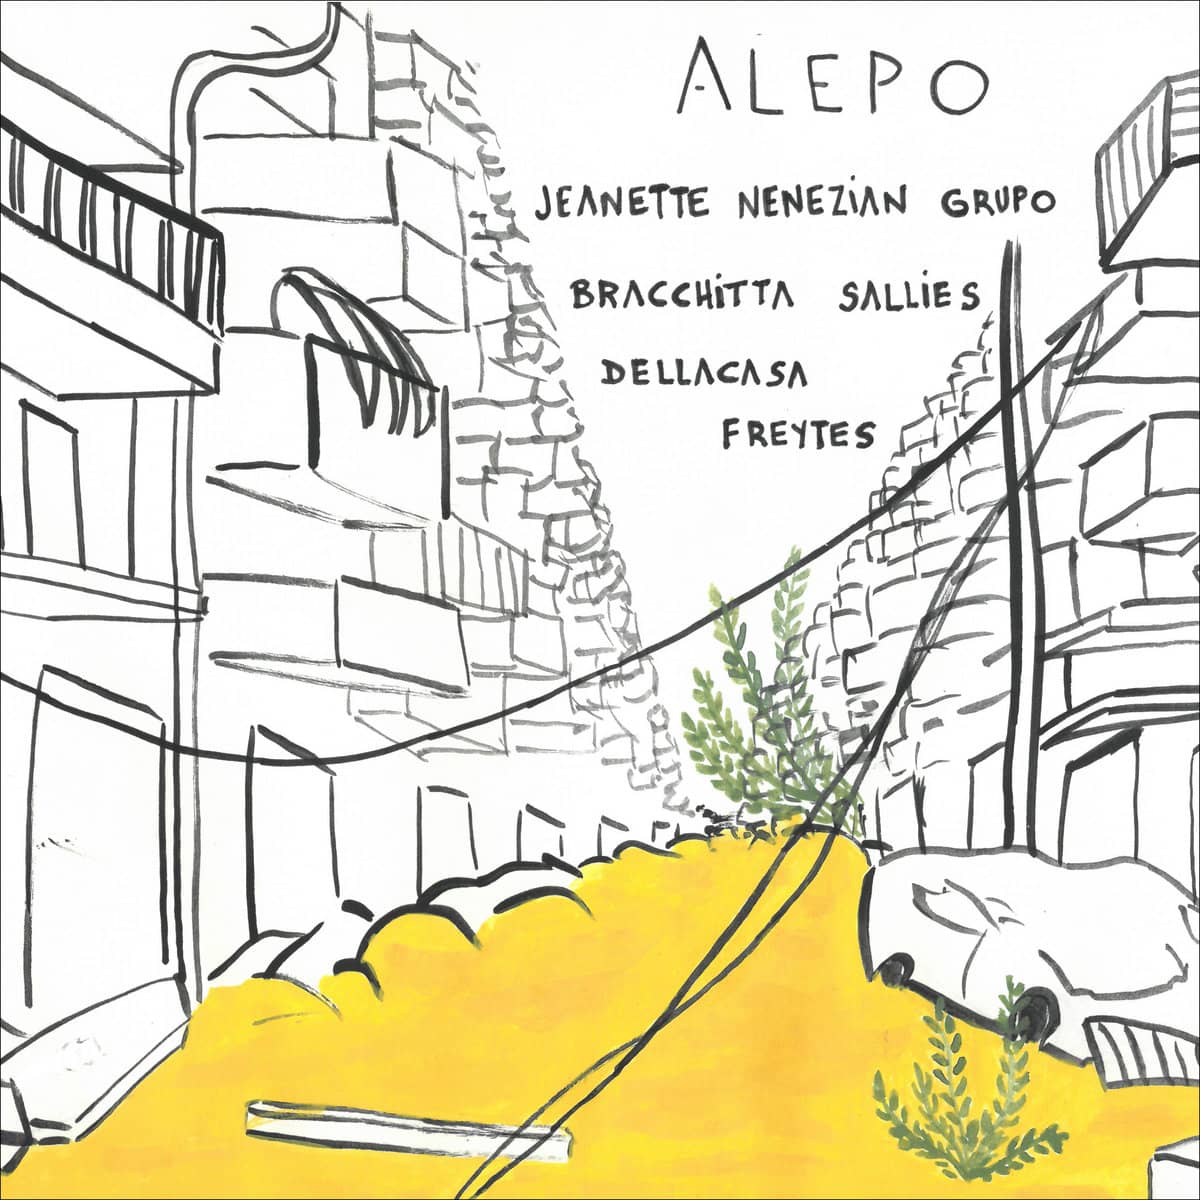 ALEPO
JEANETTE NENEZIAN GRUPO
BRACCHITTA SALLIES
DELLACASA
FREYTES